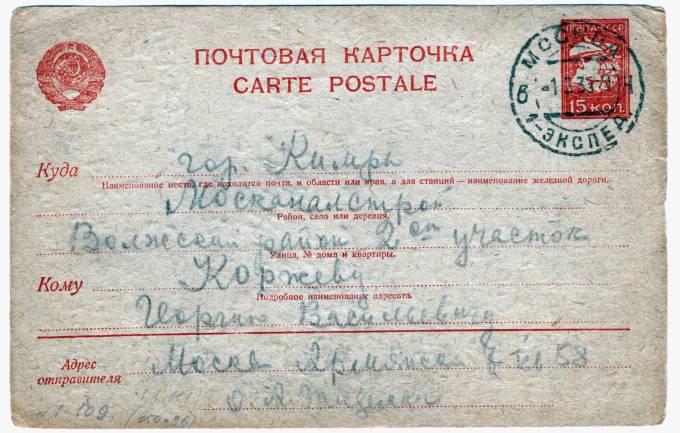 ПОЧТОВАЯ КАРТОЧКА
CARTE POSTALE
ПОЧТА СССР
15 КОП.
МОСКВА
1-ЭКСПЕД.
Куда гор. Кимры
Наименование места, где находится почта, и области или края, а для станций — наименование железной дороги.
Москаналстрой
Район, село или деревня.
Волжский район 2 ой участок
Улица, № дома и квартиры.
Кому Коржеву
Подробное наименование адресата.
Георгию Васильевичу
Адрес Москва Армянск 7 58
отправителя